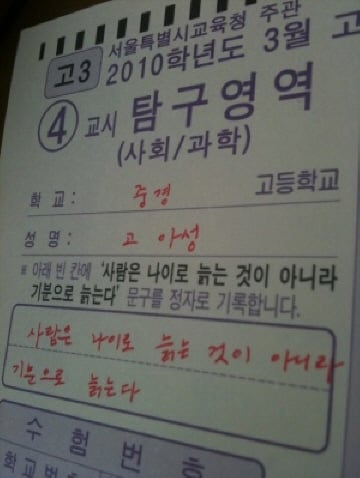 서울특별시교육청 주관
고3 2010학년도 3월 고
④ 교시 탐구영역
(사회/과학)
학교: 중경 고등학교
성명: 고아성
※ 아래 빈 칸에 '사람은 나이로 늙는 것이 아니라
기분으로 늙는다' 문구를 정자로 기록합니다.
사람은 나이로 늙는 것이 아니라
기분으로 늙는다
수험번호